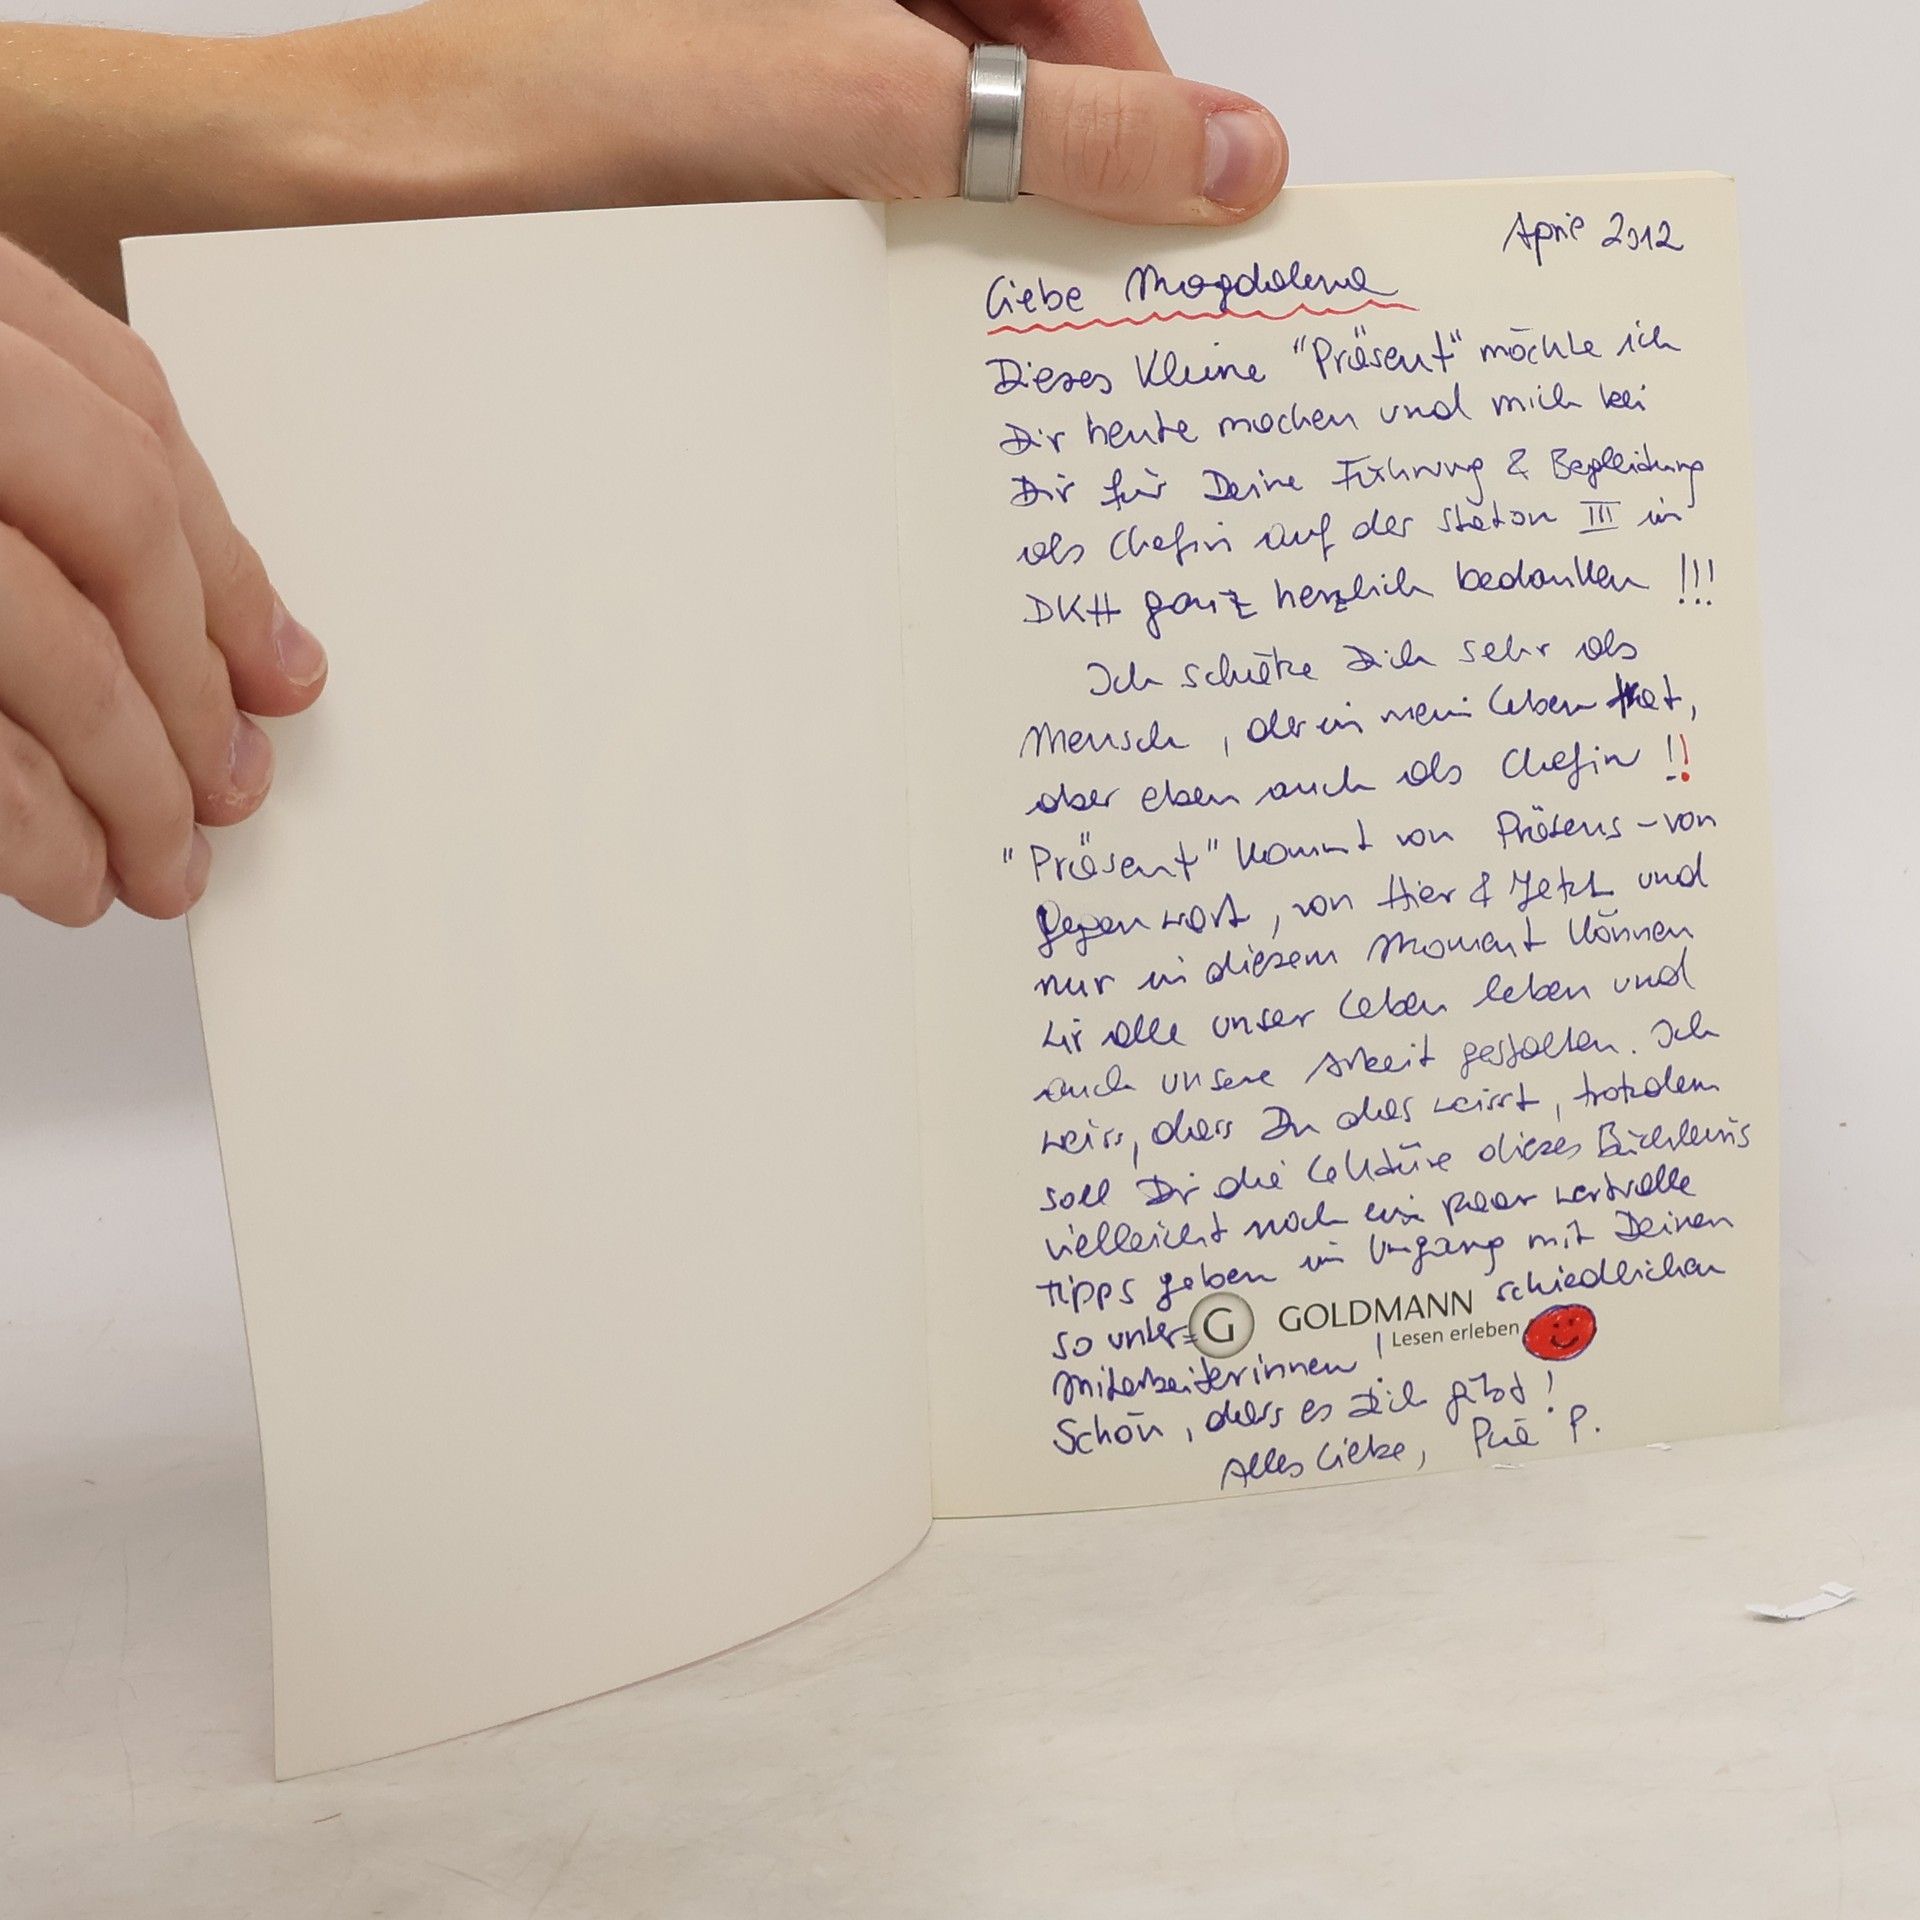 April 2012
Liebe Magdalena
Dieses kleine "Präsent" möchte ich
Dir heute machen und mich bei
Dir für Deine Führung & Begleitung
als Chefin auf der Station III im
DKH ganz herzlich bedanken !!!
Ich schätze Dich sehr als
Mensch, der in mein Leben trat,
aber eben auch als Chefin !!
"Präsent" kommt von Präsens - von
Gegenwart, von Hier & Jetzt und
nur in diesem Moment können
wir alle unser Leben leben und
auch unsere Arbeit gestalten. Ich
weiss, dass Du das weisst, trotzdem
soll Dir die Lektüre dieses Büchleins
vielleicht noch ein paar wertvolle
Tipps geben im Umgang mit Deinen
so unter= schiedlichen
G GOLDMANN
Lesen erleben
Mitarbeiterinnen !
Schön, dass es Dich gibt !
Alles Liebe, P.